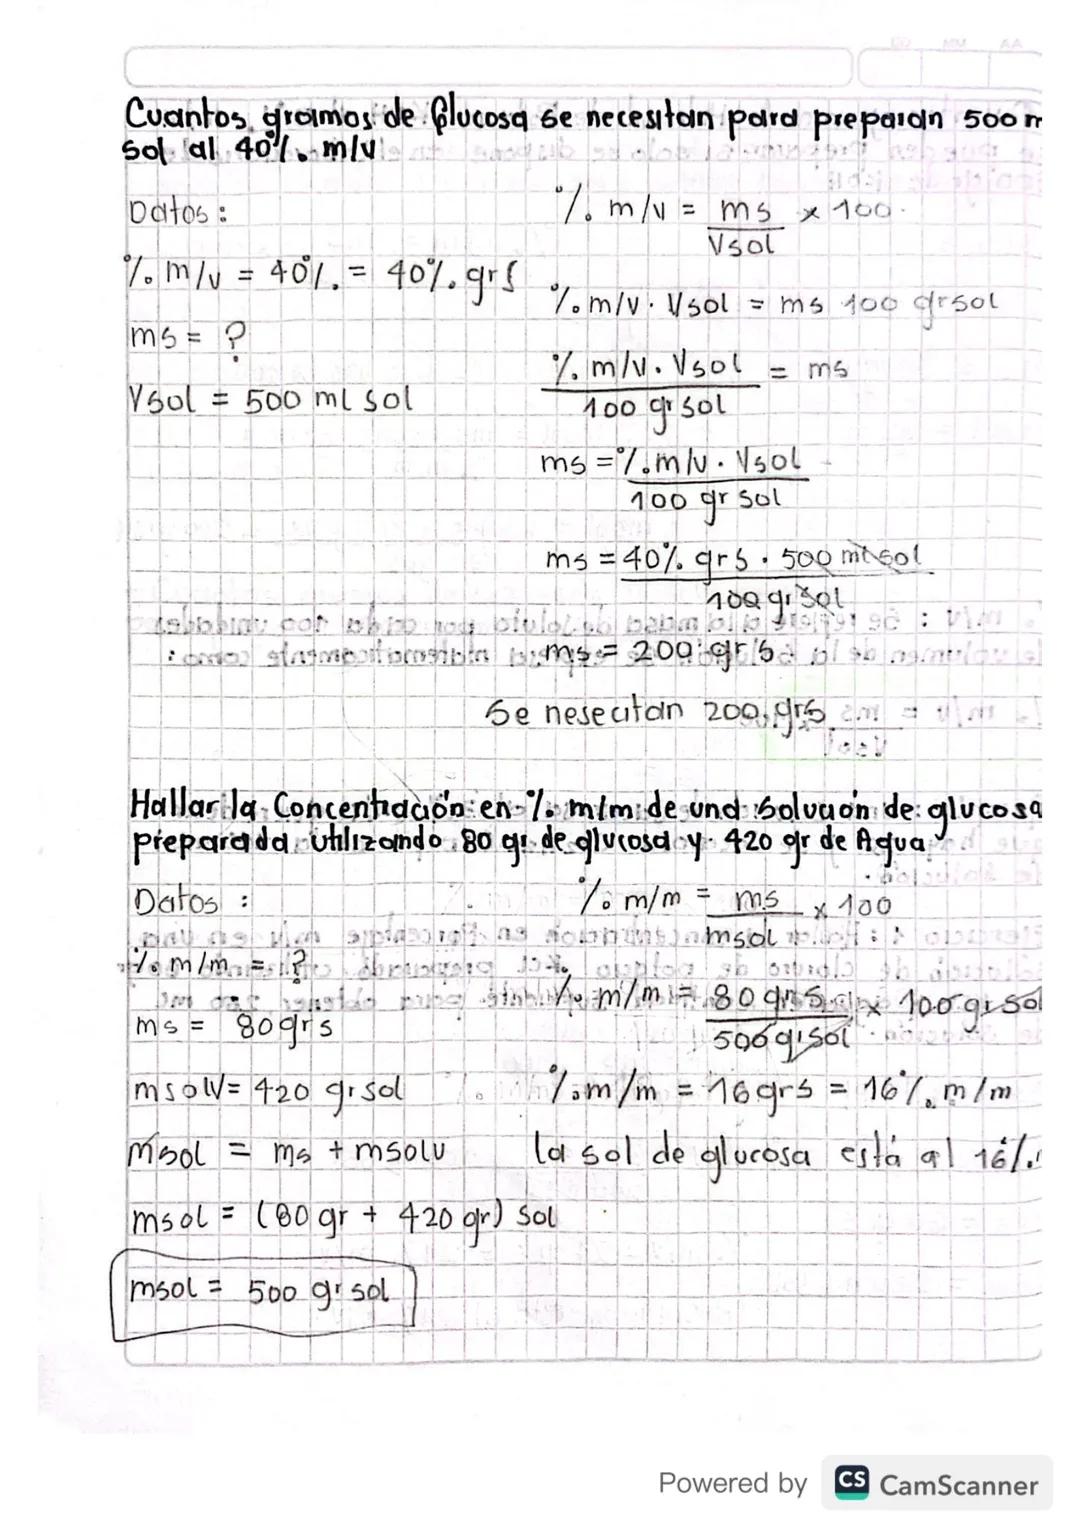 Cuantos gramos de Glucosa se necesitan para preparan 500 m
sol al 40% m/v
Datos:
% m/v = 40% = 40% grs
ms = ?
Vsol = 500 ml sol
% m/v = ms/Vsol x 100
% m/v · Vsol = ms 100 gr sol
% m/v · Vsol / 100 gr sol = ms
ms = % m/v · Vsol / 100 gr sol
ms = 40% grs · 500 ml sol / 100 gr sol
ms = 200 grs
Se nesecitan 200 grs
Hallar la Concentración en % m/m de una solución de glucosa
preparada utilizando 80 gr de glucosa y 420 gr de Agua
Datos :
% m/m = ?
ms = 80 grs
msolv = 420 gr sol
msol = ms + msolv
msol = (80 gr + 420 gr) sol
msol = 500 gr sol
% m/m = ms/msol x 100
% m/m = 80 grs/500 gr sol x 100 gr sol
% m/m = 16 grs = 16% m/m
la sol de glucosa está al 16%
Powered by CS CamScanner